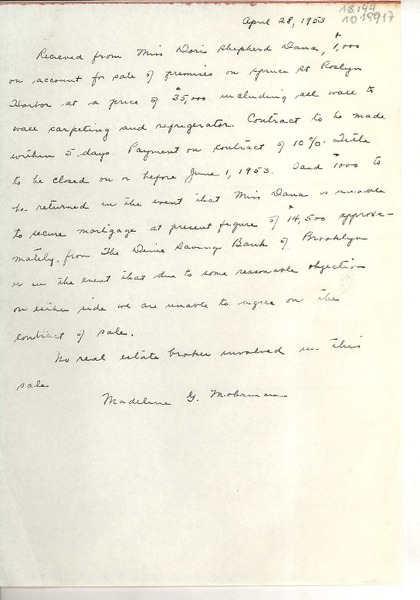 18144
1019917
April 28, 1953
Recieved from Miss Doris Shepherd Dana, $1,000
on account for sale of premises on Spruce St Roslyn
Harbor at a price of $35,000 including all wall to
wall carpeting and refrigerator. Contract to be made
within 5 days. Payment on contract of 10%. Title
to be closed on or before June 1, 1953. Said $1000 to
be returned in the event that Miss Dana is unable
to secure mortgage at present figure of $14,500 approxi-
mately, from The Dime Savings Bank of Brooklyn
or in the event that due to some reasonable objection
on either side we are unable to agree on the
contract of sale.
No real estate broker involved in this
sale
Madeline G. Mohrman